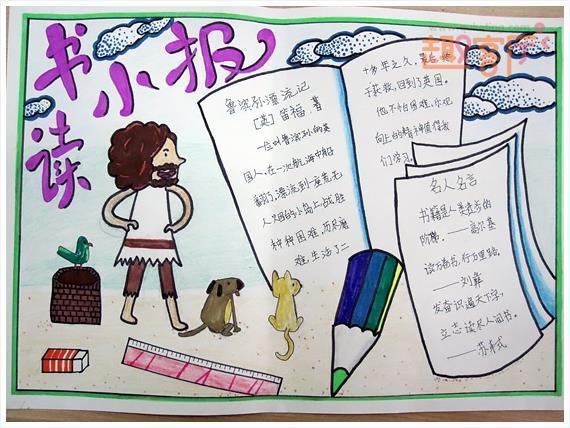 读书小报
鲁滨孙漂流记
[英] 笛福·著
一位叫鲁滨孙的英
国人,在一次航海中船
翻了,漂流到一座荒无
人烟的小岛上,战胜
种种困难,历尽磨
难,生活了二
十多年之久,最后终
于获救,回到了英国。
他不怕困难,乐观
向上的精神值得我
们学习。
名人名言
书籍是人类进步的
阶梯。——高尔基
读万卷书,行万里路。
——刘彝
发奋识遍天下字,
立志读尽人间书。
——苏轼